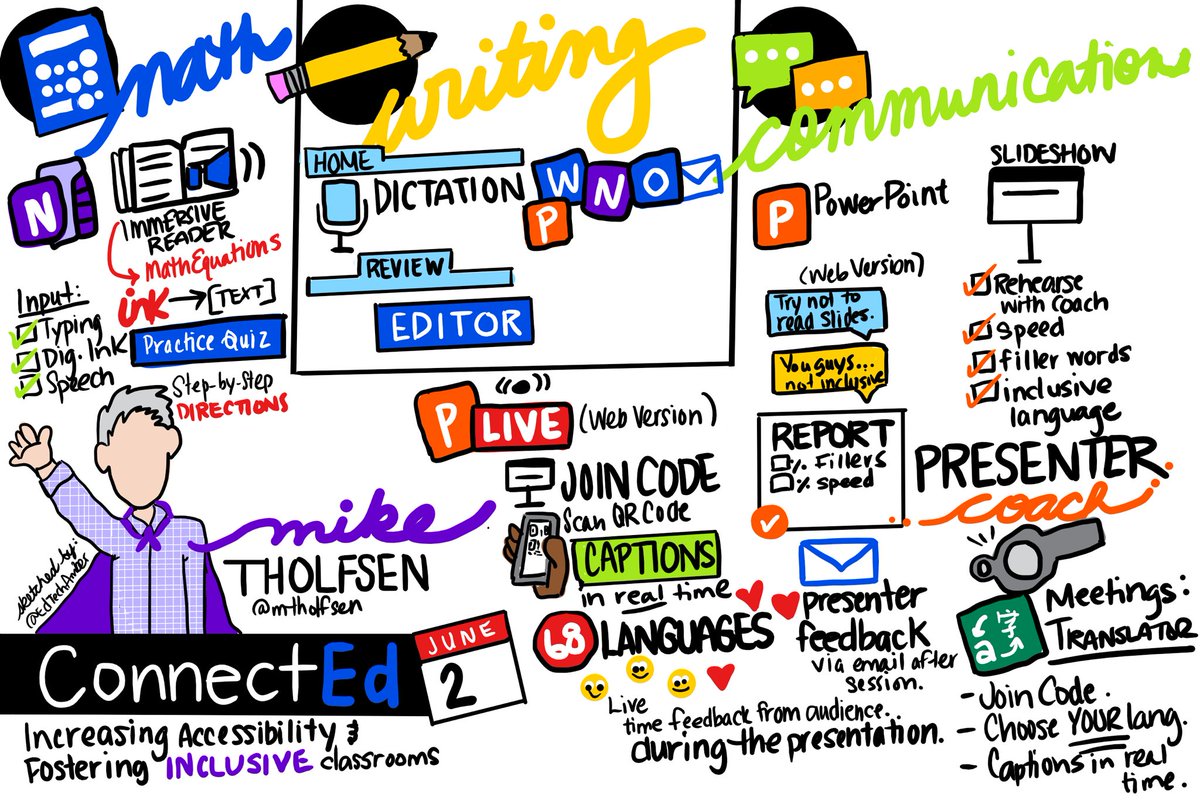 math
N
IMMERSIVE
READER
Math Equations
ink → [TEXT]
Input:
Typing
Dig. Ink
Speech
Practice Quiz
Step-by-Step
DIRECTIONS
writing
HOME
DICTATION
W
P
N
O
REVIEW
EDITOR
communication
P
PowerPoint
(Web Version)
Try not to
read slides.
You guys...
not inclusive
REPORT
% Fillers
% Speed
SLIDESHOW
Rehearse
with coach
Speed
filler words
inclusive
language
PRESENTER
coach
P LIVE (Web Version)
JOIN CODE
Scan QR Code
CAPTIONS
in real time
68 LANGUAGES
Live
time feedback from audience..
during the presentation.
presenter
feedback
via email after
session.
Meetings:
TRANSLATOR
字
a
- Join Code.
- Choose YOUR lang.
- Captions in real
time.
mike
THOLFSEN
@mtholfsen
sketched by:
@EdTechAmber
ConnectEd
JUNE
2
Increasing Accessibility &
Fostering INCLUSIVE classrooms